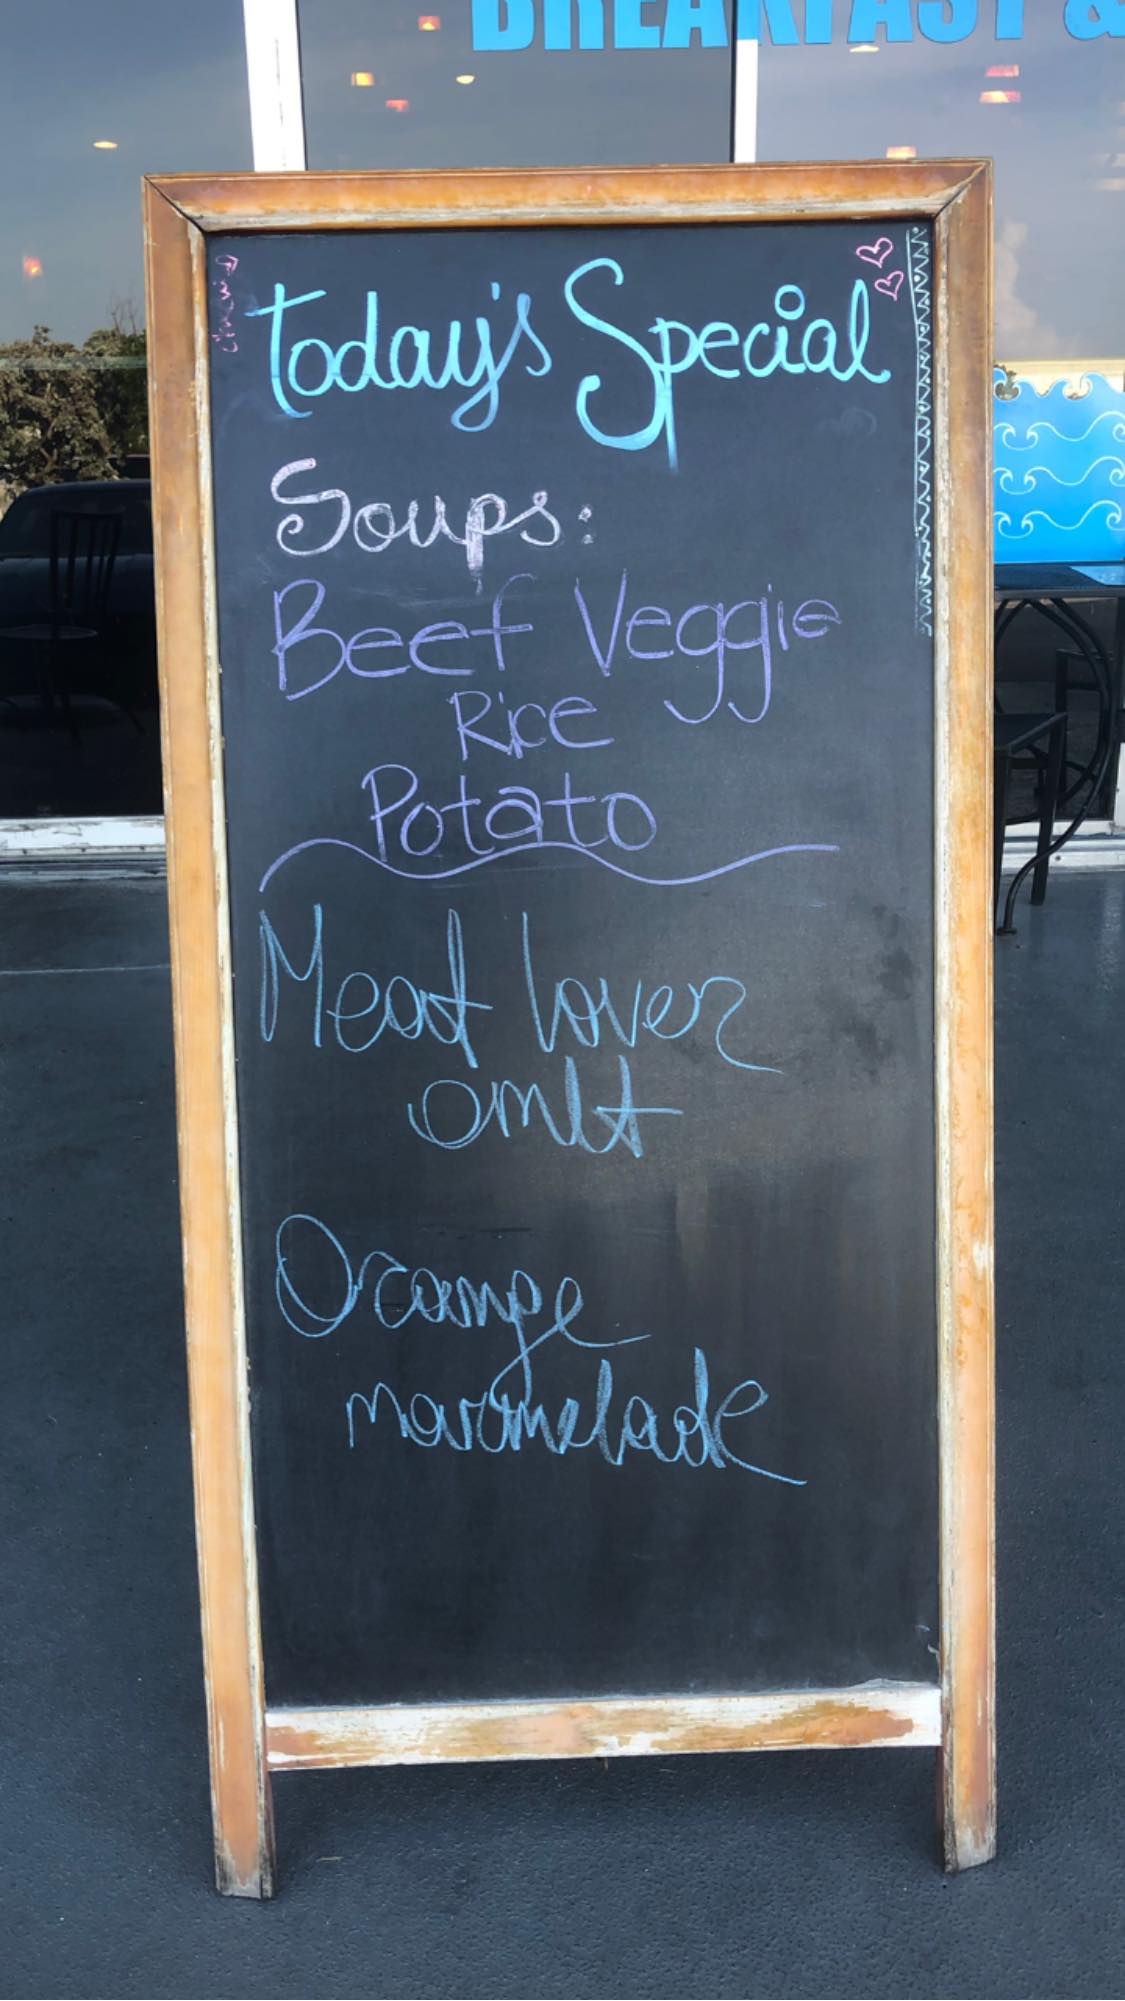 BREAKFAST &
Today's Special
Soups:
Beef Veggie
Rice
Potato
Meat lover
omlt
Orange
marmelade